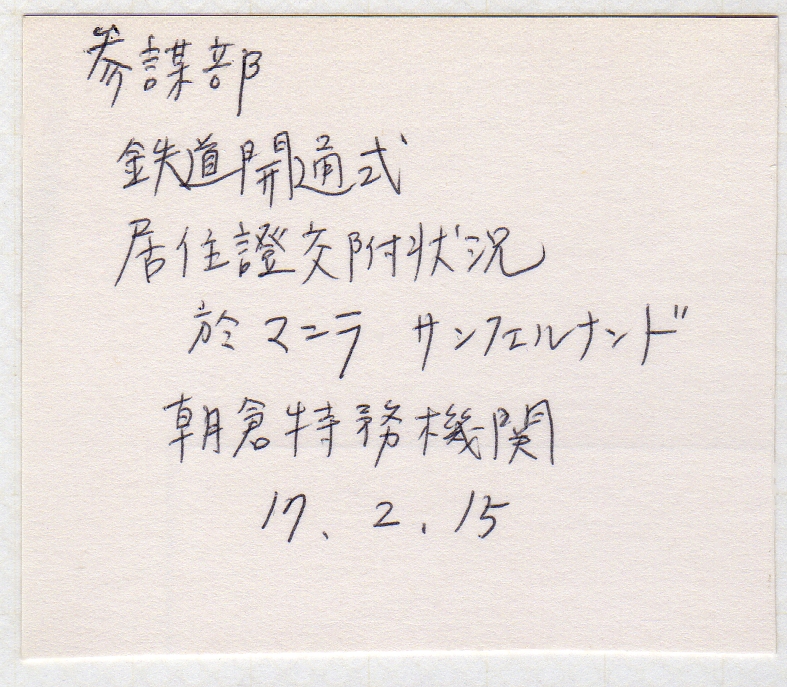 参謀部
鉄道開通式
居住證交附状況
於マニラ サンフェルナンド
朝倉特務機関
17.2.15